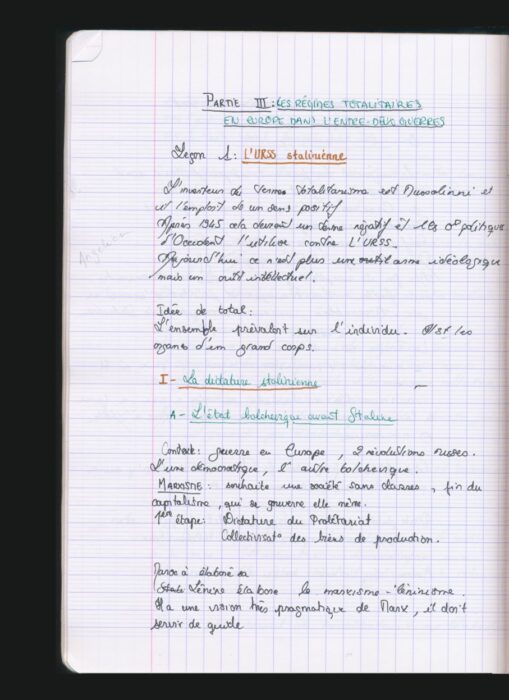 PARTIE III : LES RÉGIMES TOTALITAIRES
EN EUROPE DANS L'ENTRE-DEUX GUERRES
Leçon 1: L'URSS stalinienne
L'inventeur du terme totalitarisme est Mussolinni et
il l'emploit de un sens positif
Après 1945 cela devient un terme négatif et les politique
d'Occident l'utilise contre L'URSS.
Aujourd'hui ce n'est plus une arme idéologique
mais un outil intellectuel.
Idée de total:
L'ensemble prévalent sur l'individu. les
organe d'un grand corps.
I - La dictature stalinienne
A - L'état bolchevique avant Staline
Contexte: guerre en Europe, 2 révolutions russes.
L'une démocratique, l'autre bolchevique.
MARXISME: souhaite une société sans classes, fin du
capitalisme, qui se gouverne elle même.
1ère étape: Dictature du Prolétariat
Collectivisat° des biens de production.
a élaboré sa
Lénine élabore le marxisme-léninisme.
Il a une vision très pragmatique de Marx, il doit
servir de guide
Angelica